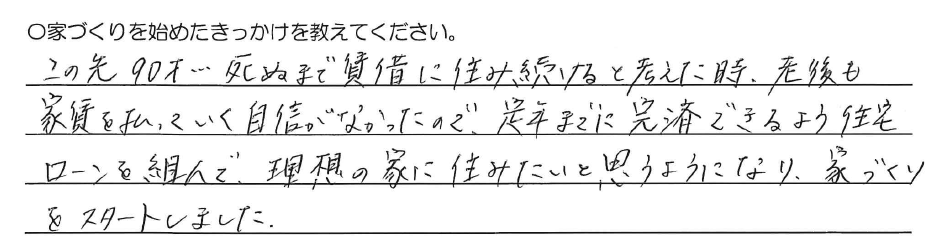 ○家づくりを始めたきっかけを教えてください。
この先90才…死ぬまで賃借に住み続けると考えた時、老後も
家賃を払っていく自信がなかったので、定年までに完済できるよう住宅
ローンを組んで、理想の家に住みたいと思うようになり、家づくり
をスタートしました。